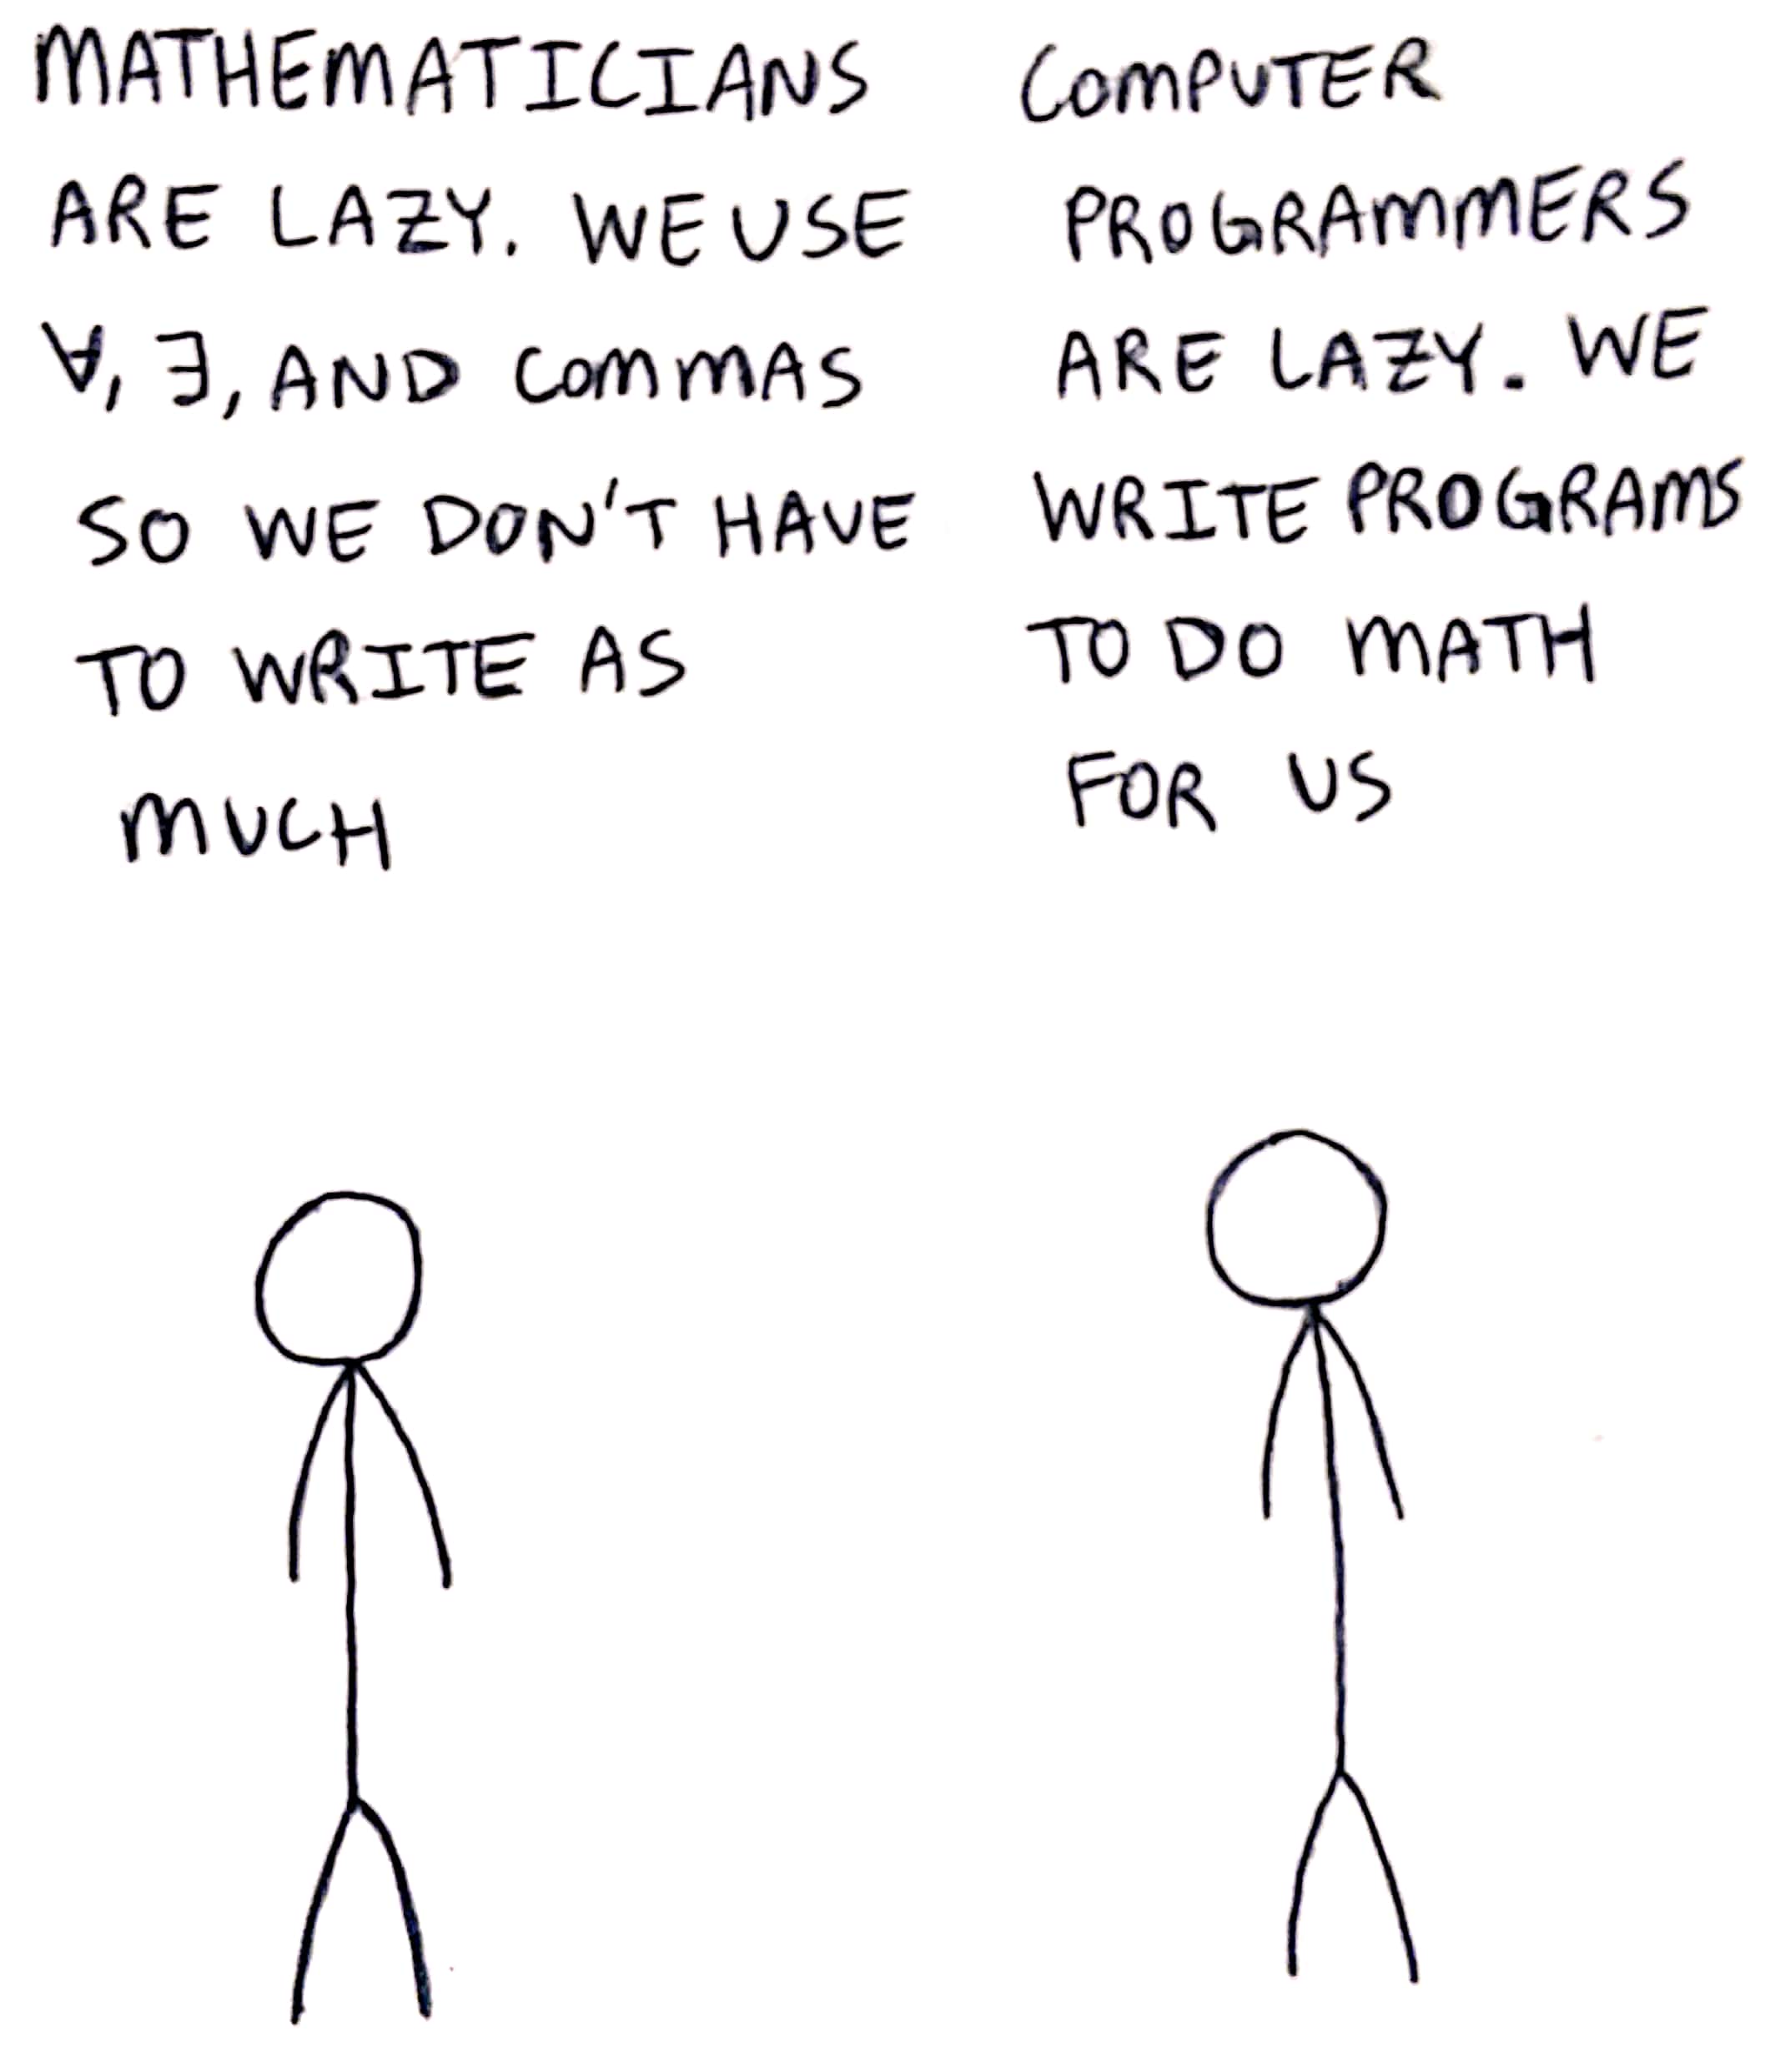 MATHEMATICIANS
ARE LAZY. WE USE
∀, ∃, AND COMMAS
SO WE DON'T HAVE
TO WRITE AS
MUCH
COMPUTER
PROGRAMMERS
ARE LAZY. WE
WRITE PROGRAMS
TO DO MATH
FOR US